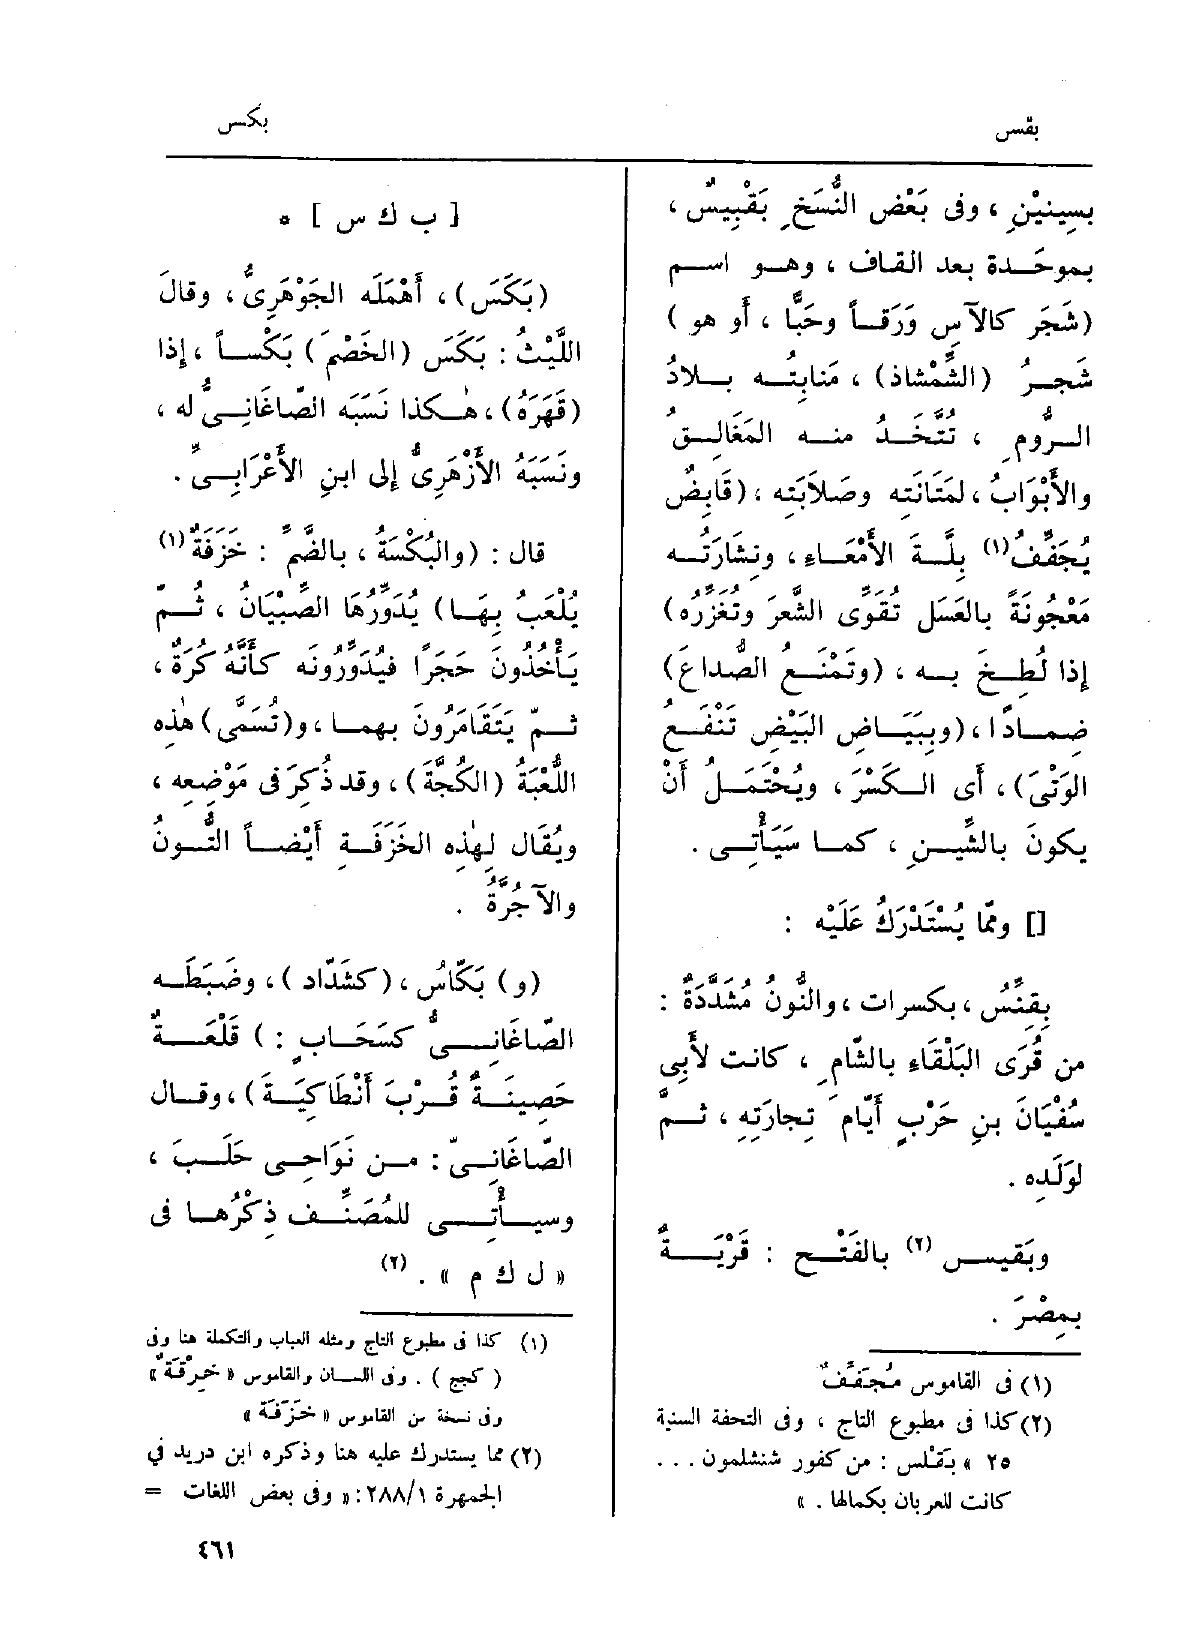 بقس
بكس
بِسِينيْنِ ، وفى بَعْض النُّسَخِ بَقْبِيسٌ ،
بموحَّدة بعد القاف ، وهـو اسم
(شَجَر كالآسِ وَرَقـاً وحَبًّا ، أو هو )
شَجـرُ (الشِّمْشاذ) ، مَنابِتُـه بـلادُ
الـرُّوم ِ ، تُتَّخَـذُ منـه المَغَالِيـقُ
والأَبْوَابُ ، لمَتَانَتِه وصَلابَتِه ، (قَابِضٌ
يُجَفِّفُ(١) بِلَّـةَ الأَمْعَـاءِ ، ونشَارَتُـه
مَعْجُونَةً بالعَسَل تُقَوِّى الشَّعرَ وتُغَزِّرُه)
إذا لُطِـخَ بـه ، (وتَمْنَـعُ الصُّداعَ)
ضِمـادًا ، (وببَيَـاضِ البَيْضِ تَنْفَـعُ
الوَثْىَ) ، أى الـكَسْرَ ، ويُحْتَمَـلُ أنْ
يكونَ بالشِّيـنِ ، كمـا سَيَأْتِـى .
[] وممّا يُسْتَدْرَكُ عَلَيْه :
بِقِنِّسُ ، بكسرات ، والنُّونُ مُشَدَّدَةٌ :
من قُرَى البَلْقَاءِ بالشَّام ِ ، كانت لأَبِى
سُفْيَانَ بنِ حَرْبٍ أَيّامَ تِجارَتِهِ ، ثـمّ
لوَلَدِه .
وبَقيس (٢) بالفَتْـحِ : قَرْيَـةٌ
بمِصْرَ .
(١) فى القاموس مُجَفِّفٌ
(٢) كذا فى مطبوع التاج ، وفى التحفة السنية
٢٥ « بَقْـلس : من كفور شنشلمون ...
كانت للعربان بكمالها . »
[ ب ك س ] *
(بَكَسَ) ، أَهْمَلَه الجَوْهَرِىُّ ، وقالَ
اللَّيْثُ : بَكَسَ (الخَصْمَ) بَكْسـاً ، إذا
(قَهَرَهُ) ، هٰكذا نَسَبَه الصّاغَانِـىُّ له ،
ونَسَبَهُ الأَزْهَرِىُّ إلى ابنِ الأَعْرَابِـىِّ .
قال : (والبُكْسَةُ ، بالضَّمِّ : خَزَفَةٌ(١)
يُلْعَبُ بِهَـا) يُدَوِّرُهَا الصِّبْيَانُ ، ثُـمّ
يَـأْخُذُونَ حَجَرًا فيُدَوِّرُونَه كأَنَّهُ كُرَةٌ ،
ثـمّ يَتَقَامَرُونَ بهمـا ، و(تُسَمَّى) هٰذه
اللُّعْبَةُ (الكُجَّةَ) ، وقد ذُكِرَ فى مَوْضِعِه ،
ويُقَال لهٰذِه الخَزَفَـةِ أَيْضـاً التُّـونُ
والآجُرَّةُ .
(و) بَكّاسُ ، (كشَدّاد ) ، وضَبَطَـه
الصّاغَانِـىُّ كسَحَـابٍ : ) قَلْعَـةٌ
حَصِينَـةٌ قُـرْبَ أَنْطَاكِيَـةَ ) ، وقـال
الصّاغَانِـىّ : مـن نَوَاحِـى حَلَـبَ ،
وسيـأْتِـى للمُصَنِّـف ذِكْرُهـا فى
« ل ك م » . (٢)
(١) كذا فى مطبوع التاج ومثله العباب والتكملة هنا وفى
( كجج ) . وفى اللسـان والقاموس « خِرْقَةٌ »
وفى نسخة من القاموس « خَزَفَة »
(٢) مما يستدرك عليه هنا وذكره ابن دريد في
الجمهرة ٢٨٨/١: « وفى بعض اللغات =
٤٦١